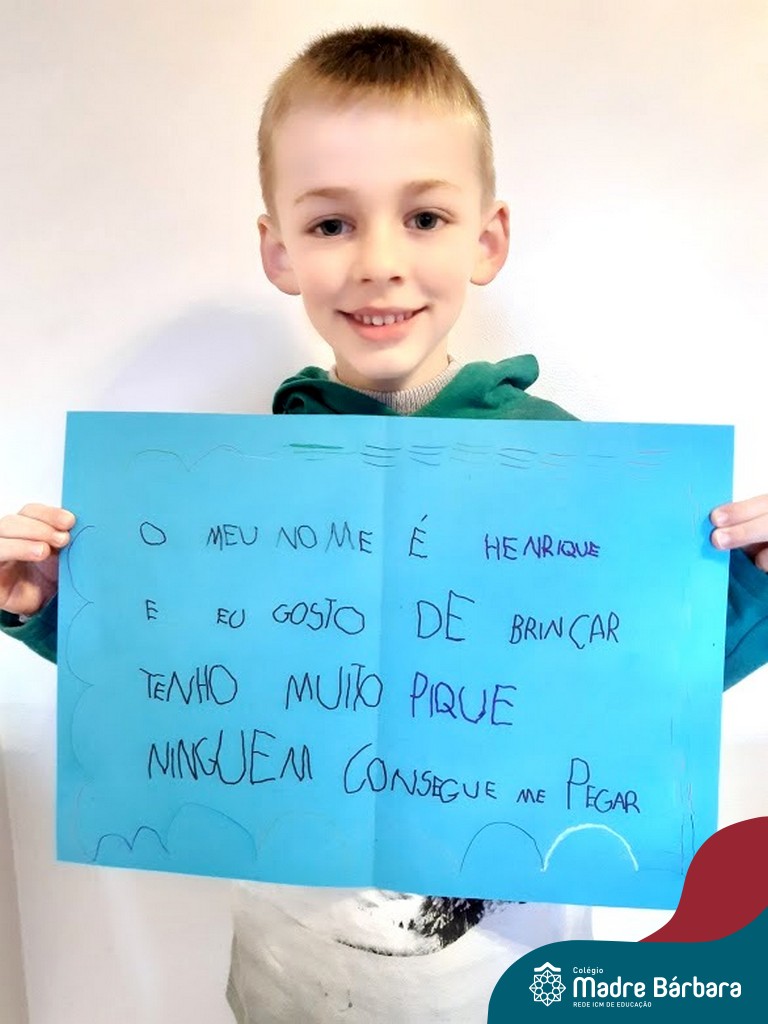 O MEU NOME É HENRIQUE
E EU GOSTO DE BRINCAR
TENHO MUITO PIQUE
NINGUEM CONSEGUE ME PEGAR
Colégio
Madre Bárbara
REDE ICM DE EDUCAÇÃO